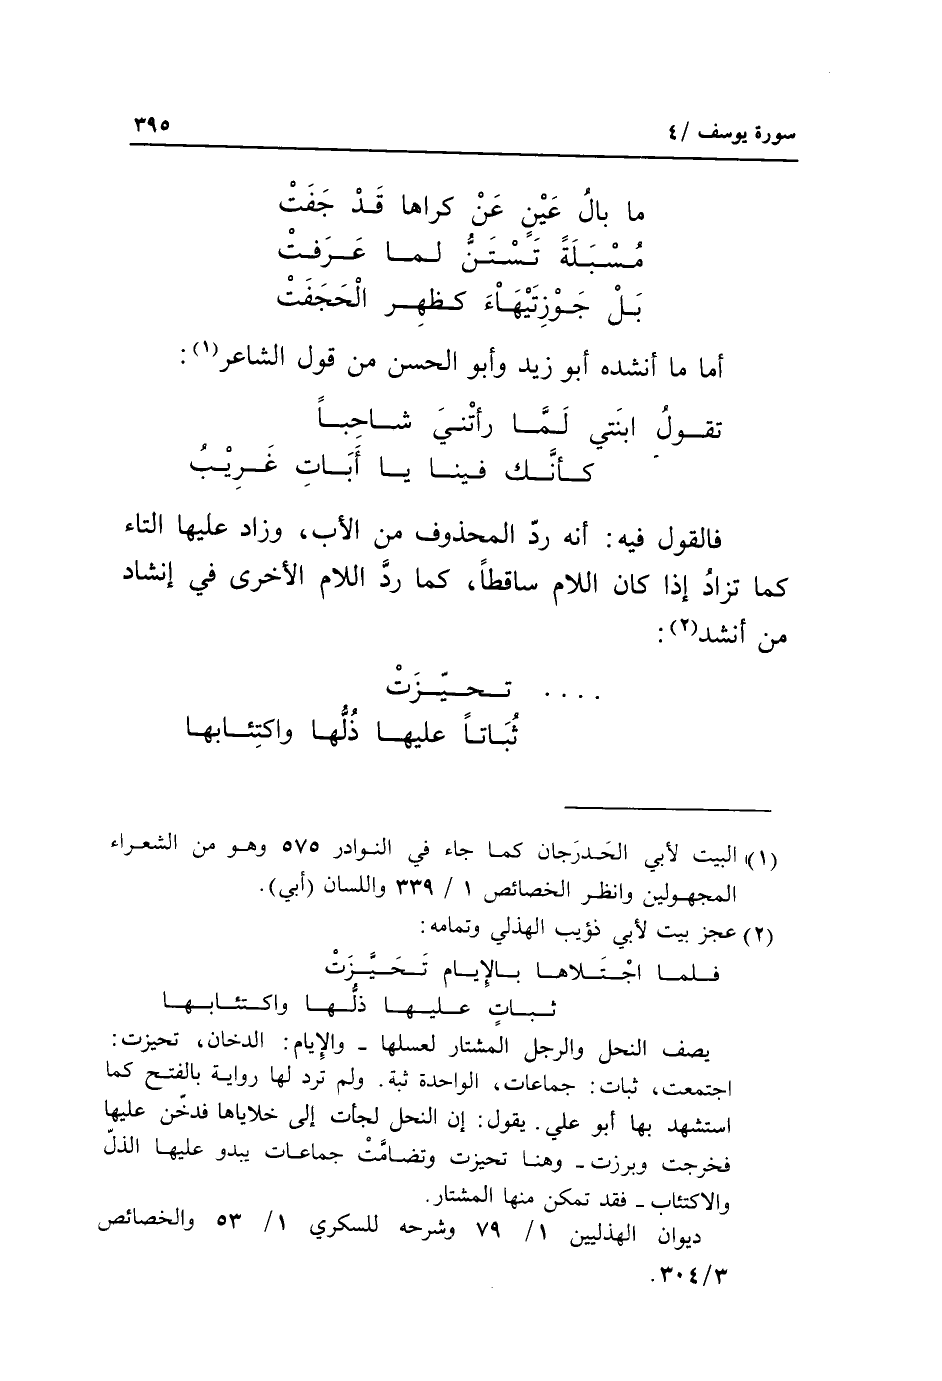 سورة يوسف /٤
٣٩٥
ما بالُ عَيْنٍ عَنْ كراها قَـدْ جَفَتْ
مُـسْـبَـلَةً تَـسْـتَـنُّ لـمـا عَـرَفـتْ
بَـلْ جَـوْزِتَيْهَـاءَ كـظهـر الْحَجَفَتْ
أما ما أنشده أبو زيد وأبو الحسن من قول الشاعر(١):
تقـولُ ابنَتي لَـمَّـا رأتْنيَ شـاحِبـاً
كـأنَّـك فـينـا يـا أَبَـاتِ غَـرِيْـبُ
فالقول فيه: أنه ردّ المحذوف من الأب، وزاد عليها التاء
كما تزادُ إذا كان اللام ساقطاً، كما ردَّ اللام الأخرى في إنشاد
من أنشد(٢):
.... تـحـيّـزَتْ
ثُبَـاتـاً عليهـا ذُلُّهـا واكتِئـابهـا
(١) البيت لأبي الحَـدرَجان كمـا جاء في النوادر ٥٧٥ وهـو من الشعـراء
المجهـولين وانظـر الخصائص ١ / ٣٣٩ واللسان (أبي).
(٢) عجز بيت لأبي ذؤيب الهذلي وتمامه:
فـلمـا اجْتَـلاهـا بـالإيـام تَـحَـيَّـزَتْ
ثـبـاتٍ عـليـهـا ذلُّـهـا واكـتـئـابـهـا
يصف النحل والرجل المشتار لعسلها ـ والإيام: الدخان، تحيزت:
اجتمعت، ثبات: جماعات، الواحدة ثبة. ولم ترد لها رواية بالفتح كما
استشهد بها أبو علي. يقول: إن النحل لجأت إلى خلاياها فدخّن عليها
فخرجت وبرزت ـ وهنا تحيزت وتضـامَّتْ جماعـات يبدو عليهـا الذلّ
والاكتئاب ـ فقد تمكن منها المشتار.
ديوان الهذليين ١/ ٧٩ وشرحه للسكري ١/ ٥٣ والخصائص
٣/ ٣٠٤.